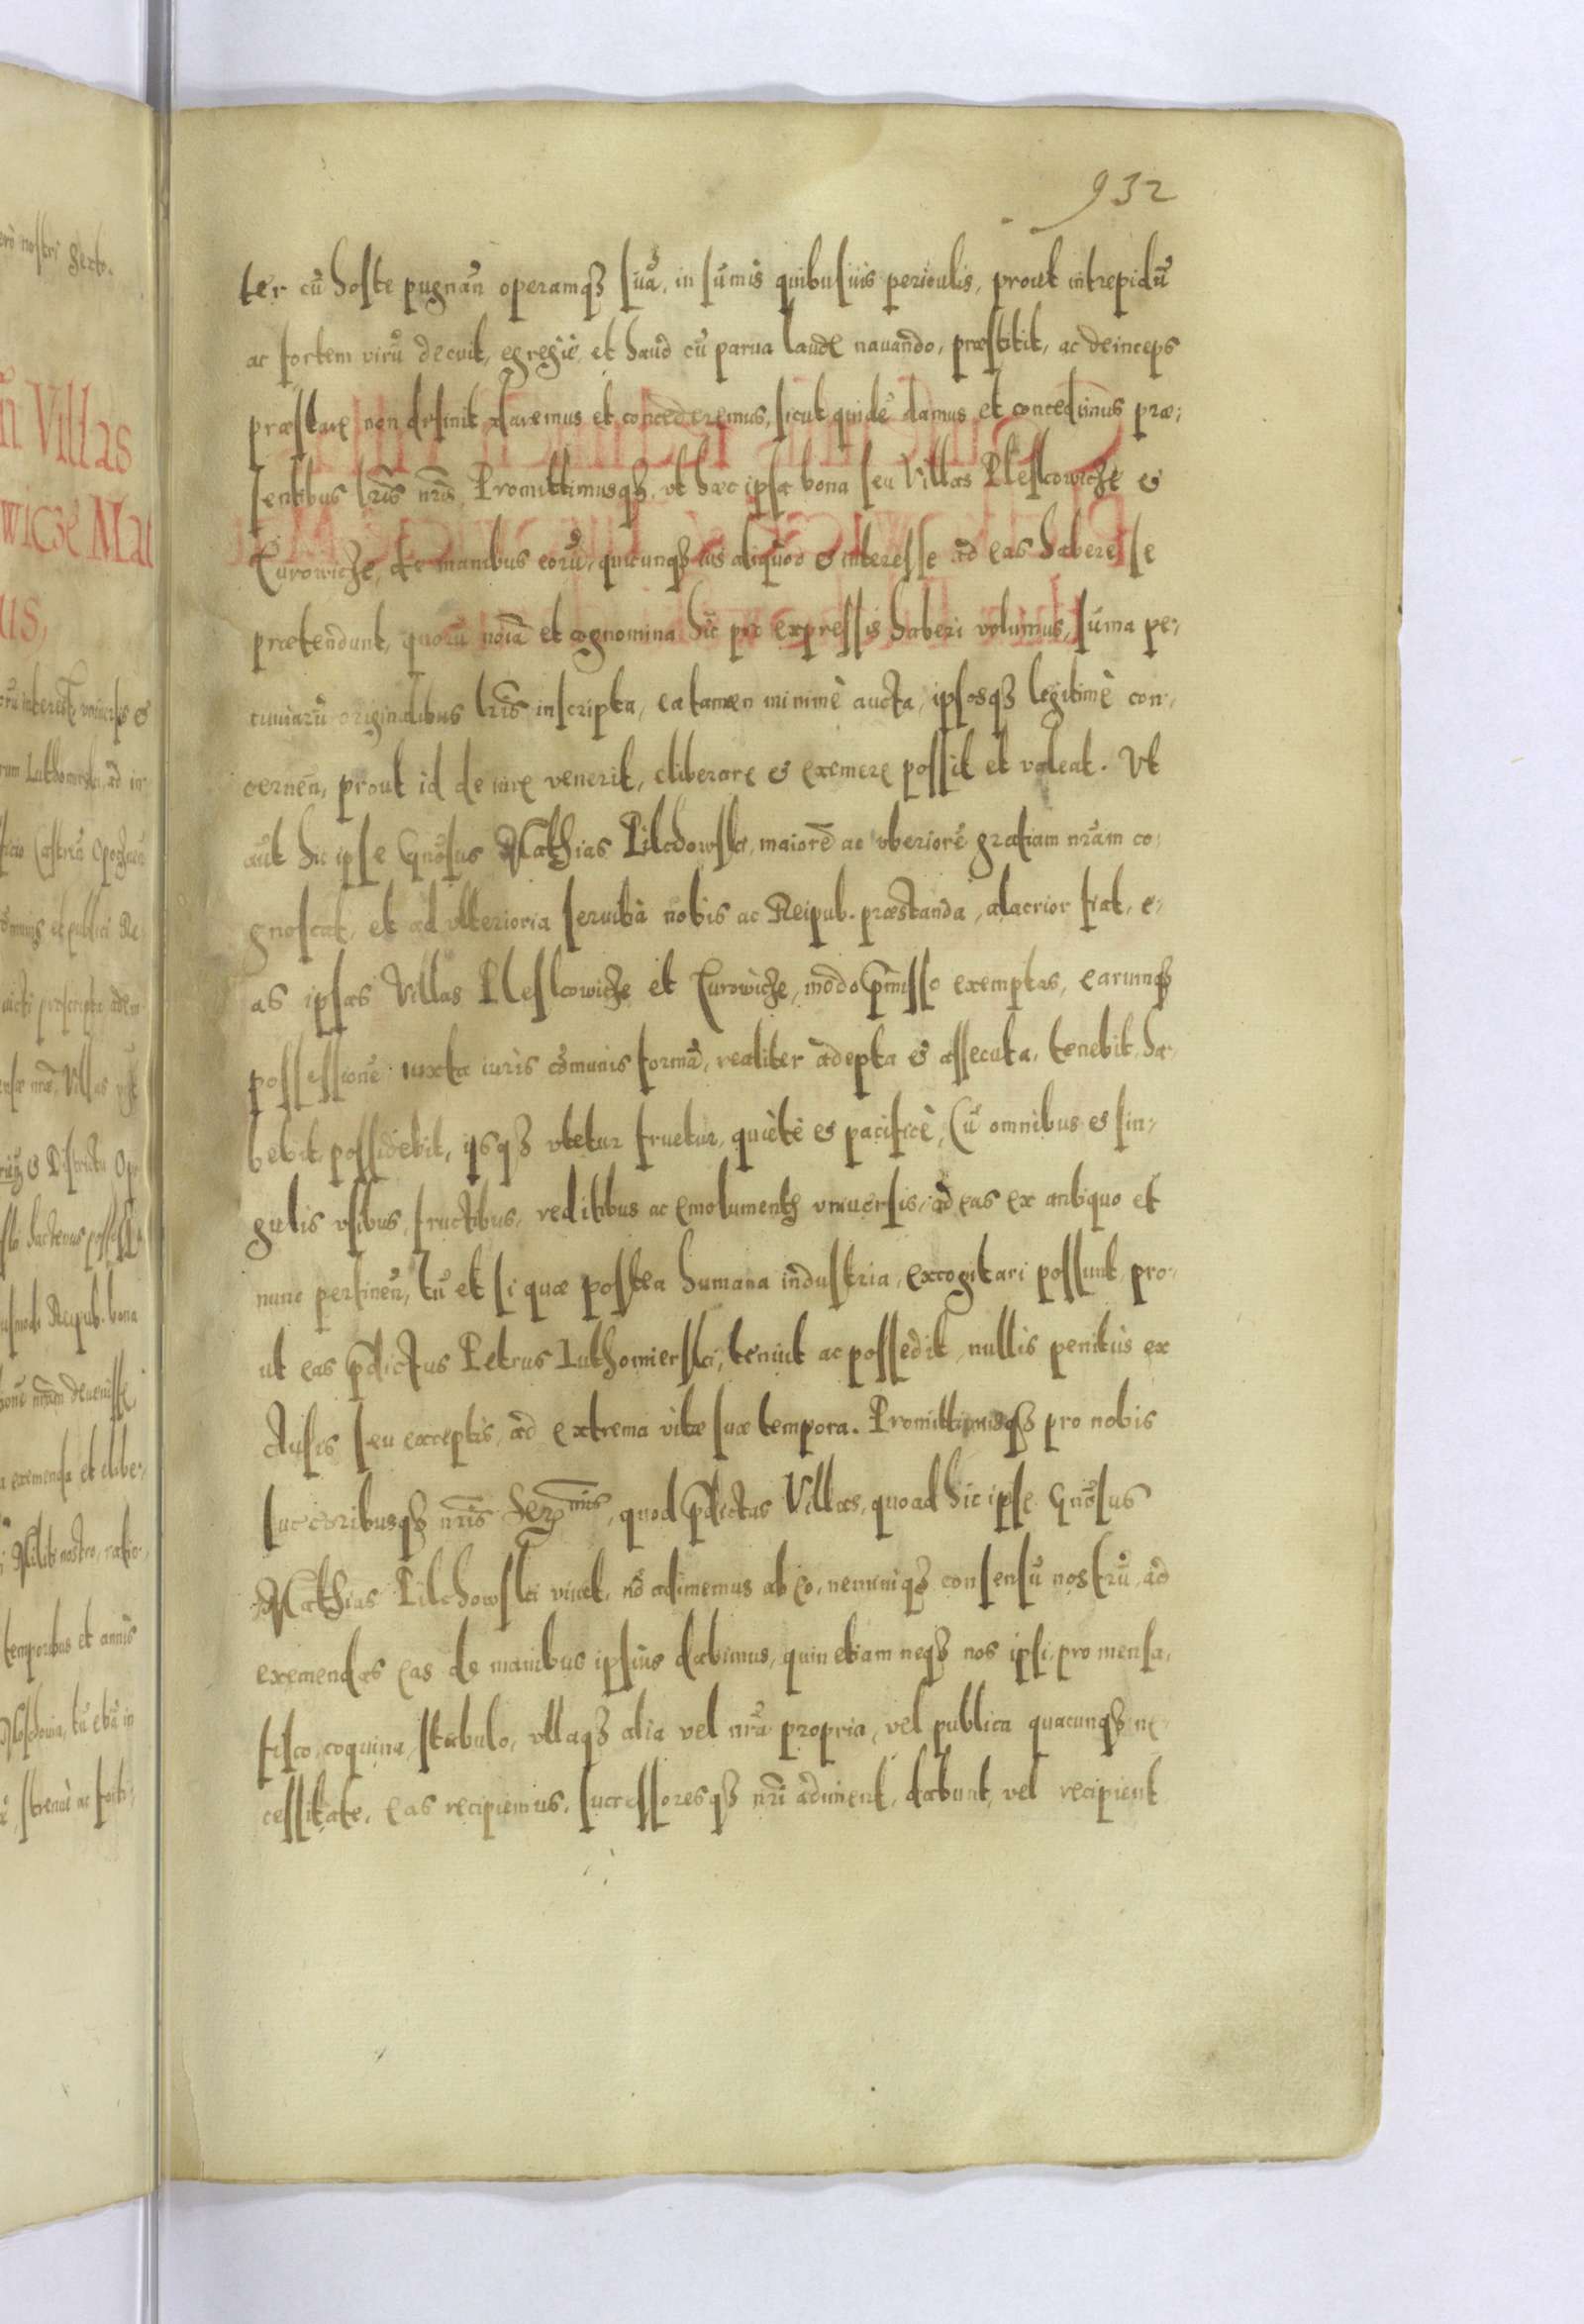 932
ter cū hoste pugnān operamqȝ suā, in sūmis quibusuis periculis, prout intrepidū
ac fortem virū decuit, egregiè et haud cū parua laude nauando, præstitit, ac deinceps
præstare non desinit, daremus et concederemus, sicut quidē damus et concedimus præ-
sentibus lr̄is nr̄is. Promittimusqȝ, vt hæc ipsa bona seu Villas Pleskowicze &
Zurowicze, de manibus eorū, quicunqȝ ius aliquod & interesse ad eas habere se
prætendunt, quorū noīa et cognomina hic pro expressis haberi volumus, sūma pe-
cuniarū originalibus lr̄is inscripta, ea tamen minimè aucta, ipsosqȝ legitimè con-
cernēn, prout id de iure venerit, eliberare & exemere possit et valeat. Vt
aūt hic ipse Gnōsus Mathias Pilchowski, maiorē ac vberiorē gratiam nr̄am co-
gnoscat, et ad vlterioria seruitia nobis ac Reipub. præstanda, alacrior fiat, e-
as ipsas Villas Pleskowicze et Zurowicze, modo p̄misso exemptas, earumqȝ
possessionē iuxta iuris cōmunis formā, realiter adepta & assecuta, tenebit, ha-
bebit, possidebit, ijsqȝ vtetur fruetur, quietè & pacificè, Cū omnibus & sin-
gulis vsibus, fructibus, reditibus ac emolumentis vniuersis, ad eas ex antiquo et
nunc pertinēn, tū et si quæ postea humana industria, excogitari possunt, pro-
ut eas p̄dictus Petrus Luthomierski, tenuit ac possedit, nullis penitùs ex
clusis seu exceptis, ad extrema vitæ suæ tempora. Promittimusqȝ pro nobis
succesoribusqȝ nr̄is Serᵐⁱˢ, quod p̄dictas Villas, quoad hic ipse Gnōsus
Mathias Pilchowski viuet, nō adimemus ab eo, neminiqȝ consensū nostrū, ad
exemendas eas de manibus ipsius dabimus, quin etiam neqȝ nos ipsi, pro mensa,
fisco, coquina, stabulo, vllaqȝ alia vel nr̄a propria, vel publica quacunqȝ ne-
cessitate, eas recipiemus, successoresqȝ nr̄i adiment, dabunt, vel recipient